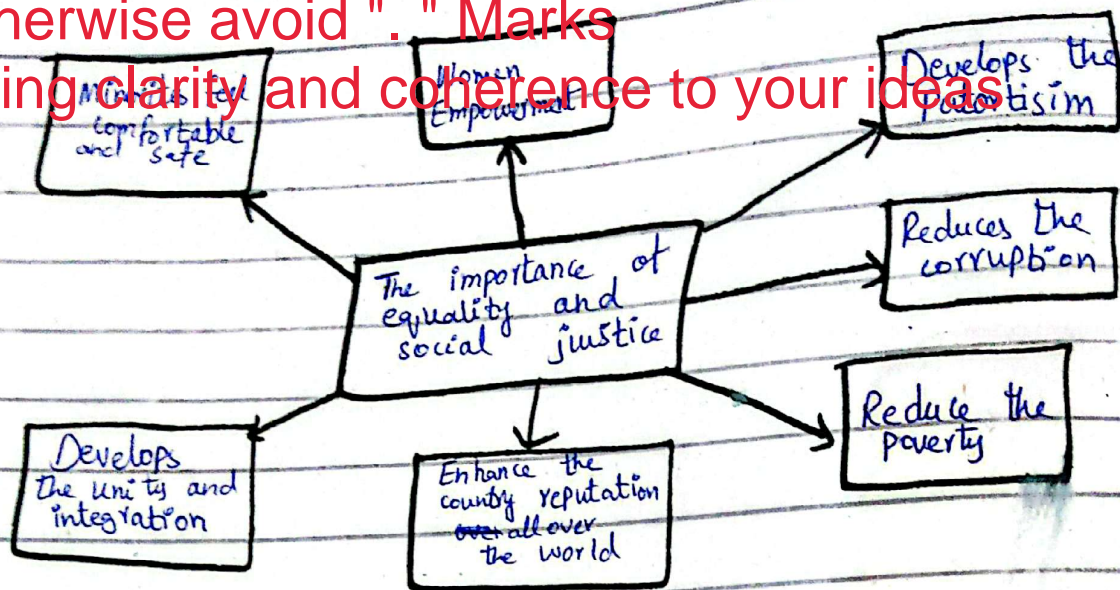 herwise avoid " . " Marks
ing clarity and coherence to your ideas
Minorities feel
comfortable
and safe
Women
Empowerment
Develops the
patortisim
Reduces the
corruption
The importance of
equality and
social jiustice
Reduce the
poverty
Develops
the unity and
integration
Enhance the
country reputation
over all over
the world